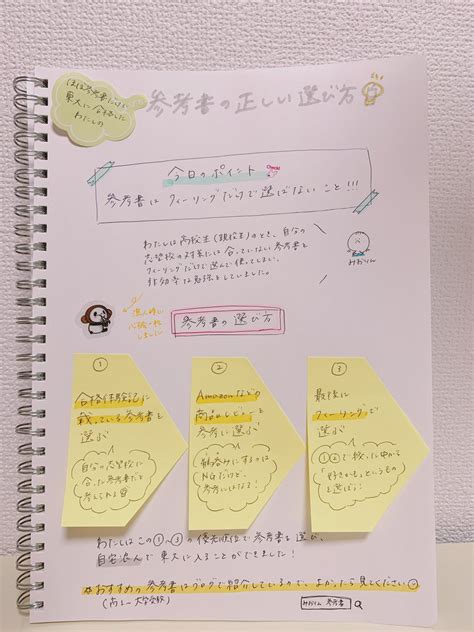 ほぼ参考書だけで
東大に合格した
わたしの
参考書の正しい選び方
今日のポイント
Check!
参考書はフィーリングだけで選ばないこと!!!
わたしは高校生(現役生)のとき、自分の
志望校の対策には合っていない参考書を
フィーリングだけで選んで使ってしまい、
非効率な勉強をしていました。
みおりん
参考書の選び方
①
合格体験記に
載っている参考書を
選ぶ
自分の志望校に
合った参考書だと
考えられる
②
Amazonなどの
商品レビューを
参考に選ぶ
鵜呑みにするのは
NGだけど、
参考にはなる!
③
最後に
フィーリングで
選ぶ
①②で絞った中から
「好きかも」というもの
を選ぼう!
わたしはこの①〜③の優先順位で参考書を選び、
自宅浪人で東大に入ることができました!
☆おすすめの参考書はブログで紹介しているので、よかったら見てください
(高1〜大学受験)
みおりん 参考書